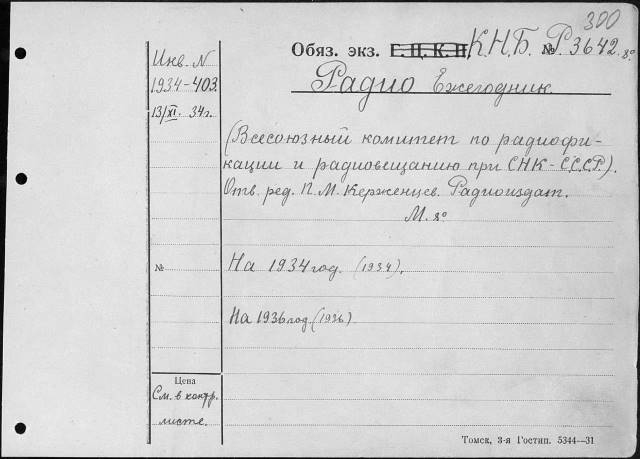 300
Обяз. экз. Г.Ц.К.П. К.Н.Б. № Р.3642. 8°
Инв. N
1934-403.
13/XI. 34г.
Радио Ежегодник.
(Всесоюзный комитет по радиофи-
кации и радиовещанию при СНК-СССР).
Отв. ред. П. М. Керженцев. Радиоиздат.
М. 8°
№
На 1934 год. (1934).
На 1936 год. (1936)
Цена
См. в контр.
листе.
Томск, 3-я Гостип. 5344—31